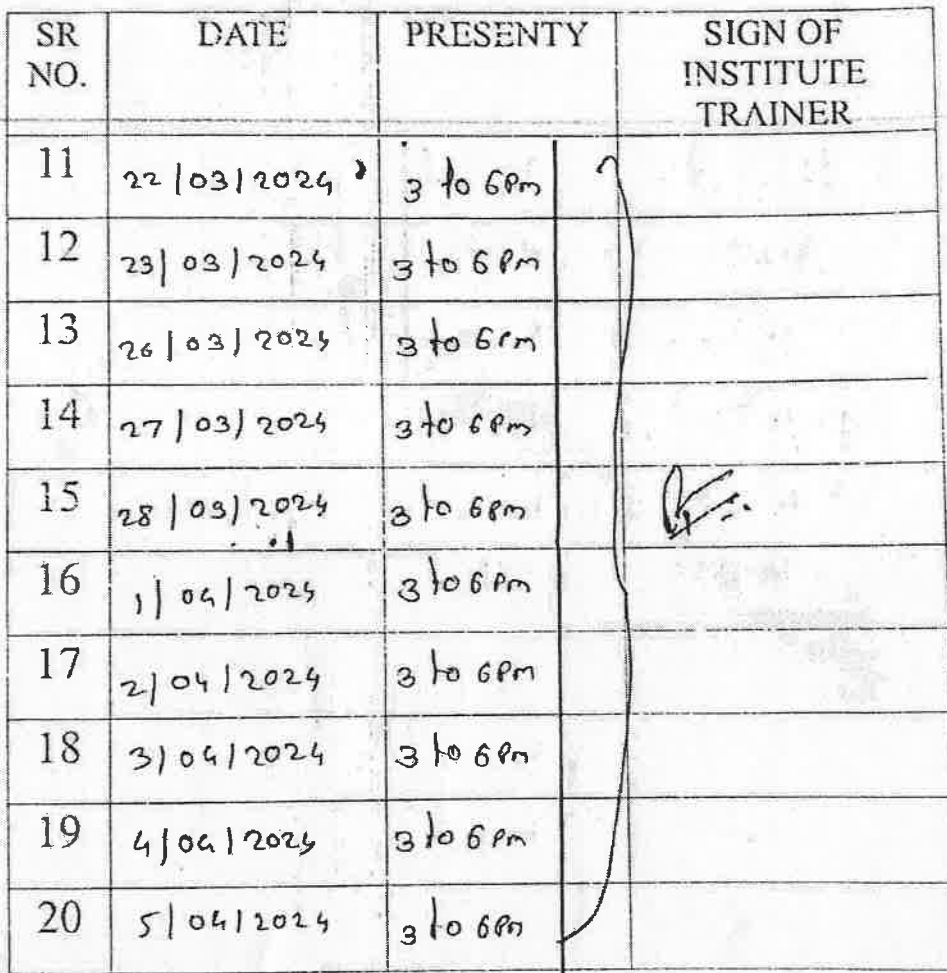 SR NO. DATE PRESENTY SIGN OF INSTITUTE TRAINER
11 22/03/2024 3 to 6Pm
12 23/03/2024 3 to 6 Pm
13 26/03/2024 3 to 6Pm
14 27/03/2024 3 to 6Pm
15 28/03/2024 3 to 6Pm
16 1/04/2024 3 to 6Pm
17 2/04/2024 3 to 6Pm
18 3/04/2024 3 to 6Pm
19 4/04/2024 3 to 6Pm
20 5/04/2024 3 to 6Pm